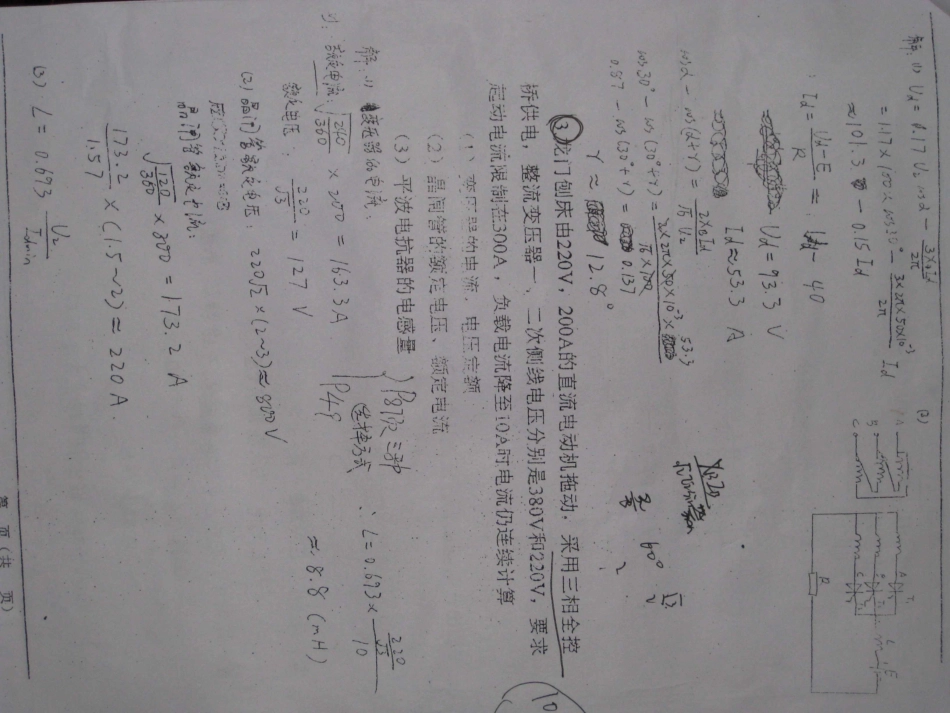 解：(1) Ud = 1.17 U2 cosα − 3XBId/2π
= 1.17×100×cos30° − 3×2π×50×10⁻³/2π Id
≈ 101.3 − 0.15 Id
∴ Id = Ud−E/R = Ud − 40
Ud = 93.3 V
Id ≈ 53.3 A
cosα − cos(α+γ) = 2XBId/√6 U2
cos30° − cos(30°+γ) = 2×2π×50×10⁻³×53.3/√6×100
0.87 − cos(30°+γ) = 0.137
γ ≈ 12.8°
(2)
A
B
C
R
L
E
60°
③龙门刨床由220V，200A的直流电动机拖动，采用三相全控
桥供电，整流变压器一、二次侧线电压分别是380V和220V，要求
起动电流限制在300A，负载电流降至10A时电流仍连续计算
（1）变压器的电流，电压定额
（2）晶闸管的额定电压、额定电流
（3）平波电抗器的电感量
P87页三种
选择方式
P48
解：(1) 变压器的电流：
额定电流：
× 200 = 163.3 A
额定电压：220/√3 = 127 V
(2) 晶闸管额定电压：220√2×(2~3) ≈ 800V
晶闸管额定电流：
√120/360 × 300 = 173.2 A
173.2/1.57 × (1.5~2) ≈ 220 A.
(3) L = 0.693 U2/Idmin
∴ L = 0.693 × 220/√3/10
≈ 8.8 (mH)
10
第 页（共 页）